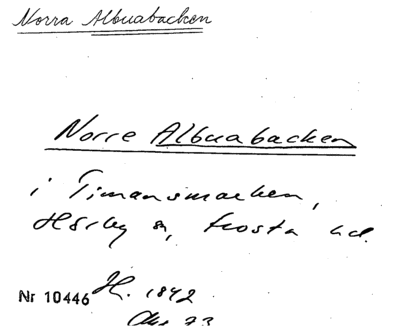 Norra Albuabacken
Norre Albuabacken
i Timansmarken,
Hörby sn, Frosta hd.
Nr 10446 H. 1842
Akt 73